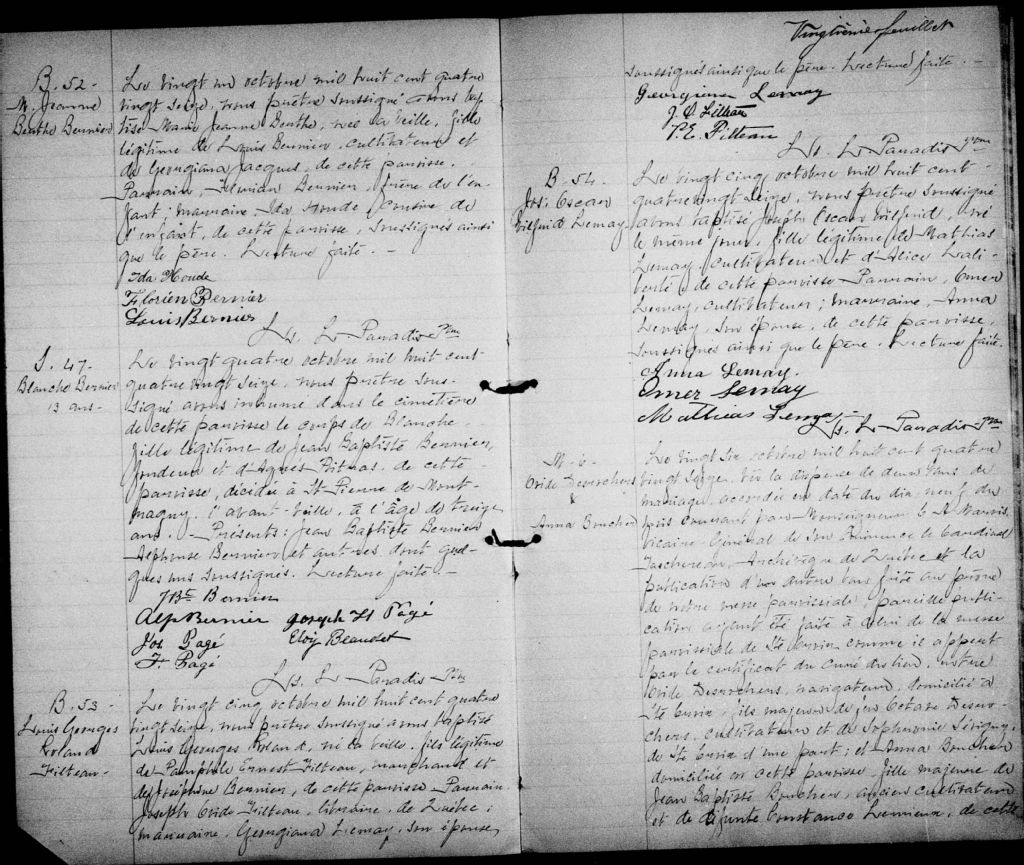 B. 52 -
M. Jeanne
Berthe Bernier
Le vingt un octobre mil huit cent quatre
vingt seize, nous prêtre soussigné avons bap
tisé Marie Jeanne Berthe, née la veille, fille
légitime de Louis Bernier, cultivateur et
de Georgiana Jacques, de cette paroisse.
Parrain, Florian Bernier, frère de l'en-
fant; marraine, Ida Houde, cousine de
l'enfant, de cette paroisse, soussignés ainsi
que le père. Lecture faite. -
Ida Houde
Florien Bernier
Louis Bernier
Ls. L. Paradis Ptre
S. 47 -
Blanche Bernier
13 ans -
Le vingt quatre octobre mil huit cent
quatre vingt seize, nous prêtre sous-
signé avons inhumé dans le cimetière
de cette paroisse le corps de Blanche,
fille légitime de Jean Baptiste Bernier,
fondeur et d'Agnès Pitras, de cette
paroisse, décédée à St-Pierre de Mont-
magny, l'avant-veille, à l'âge de treize
ans. - Présents: Jean Baptiste Bernier
Alphonse Bernier et autres dont quel-
ques uns soussignés. Lecture faite. -
J Bte Bernier
Alp Bernier Joseph H Pagé
Jos Pagé Eloi Beaudet
F. Pagé
Ls. L. Paradis Ptre
B. 53
Louis Georges
Roland
Filteau -
Le vingt cinq octobre mil huit cent quatre
vingt seize, nous prêtre soussigné avons baptisé
Louis Georges Roland, né la veille, fils légitime
de Pamphile Ernest Filteau, marchand et
de Joséphine Bernier, de cette paroisse. Parrain
Joseph Ovide Filteau, libraire, de Québec;
marraine, Georgiana Lemay, son épouse,
Vingtième feuillet
soussignés ainsi que le père. Lecture faite. -
Georgiana Lemay
J. O. Filteau
P. E. Filteau
Ls. L. Paradis Ptre
B. 54 -
Jos. Oscar
Wilfrid Lemay
Le vingt cinq octobre mil huit cent
quatre vingt seize, nous prêtre soussigné
avons baptisé Joseph Oscar Wilfrid, né
le même jour, fils légitime de Mathias
Lemay, cultivateur et d'Alice Lali-
berté, de cette paroisse. Parrain, Omer
Lemay, cultivateur; marraine, Anna
Lemay, son épouse, de cette paroisse,
soussignés ainsi que le père. Lecture faite.
Anna Lemay.
Omer Lemay
Mathias Lemay
Ls. L. Paradis Ptre
M. 6 -
Ovide Desrochers
&
Anna Boucher
Le vingt six octobre mil huit cent quatre
vingt seize, vu la dispense de deux bans de
mariage accordée en date du dix neuf du
mois courant par Monseigneur C. A. Marois
Vicaire Général de Son Eminence le Cardinal
Taschereau, Archevêque de Québec et la
publication d'un autre ban faite au prône
de notre messe paroissiale, pareille publi-
cation ayant été faite à celui de la messe
paroissiale de Ste Croix comme il appert
par le certificat du Curé du lieu, entre
Ovide Desrochers, navigateur, domicilié à
Ste Croix, fils majeur de feu Octave Desro-
chers, cultivateur et de Sophronie Lévigny,
de Ste Croix d'une part; et Anna Boucher
domiciliée en cette paroisse, fille majeure de
Jean Baptiste Boucher, ancien cultivateur
et de défunte Constance Lemieux, de cette